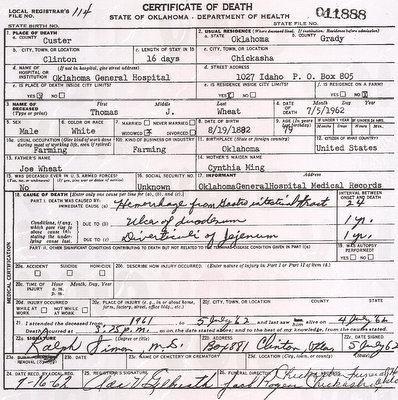 LOCAL REGISTRAR'S FILE NO. 114
CERTIFICATE OF DEATH
STATE OF OKLAHOMA - DEPARTMENT OF HEALTH
STATE FILE NO. 011888
BIRTH NO.
1. PLACE OF DEATH
a. COUNTY Custer
2. USUAL RESIDENCE (Where deceased lived. If institution: Residence before admission)
a. STATE Oklahoma b. COUNTY Grady
b. CITY, TOWN, OR LOCATION Clinton
c. LENGTH OF STAY IN 1b 16 days
c. CITY, TOWN, OR LOCATION Chickasha
d. NAME OF HOSPITAL OR INSTITUTION (If not in hospital, give street address) Oklahoma General Hospital
d. STREET ADDRESS 1027 Idaho P. O. Box 805
e. IS PLACE OF DEATH INSIDE CITY LIMITS? YES NO
e. IS RESIDENCE INSIDE CITY LIMITS? YES NO
f. IS RESIDENCE ON A FARM? YES NO
3. NAME OF DECEASED (Type or print)
First Thomas Middle J. Last Wheat
4. DATE OF DEATH Month Day Year 7/5/1962
5. SEX Male
6. COLOR OR RACE White
7. MARRIED NEVER MARRIED WIDOWED DIVORCED
8. DATE OF BIRTH 8/19/1882
9. AGE (In years last birthday) 79
10a. USUAL OCCUPATION (Give kind of work done during most of working life, even if retired) Farming
10b. KIND OF BUSINESS OR INDUSTRY Farming
11. BIRTHPLACE (State or foreign country) Oklahoma
12. CITIZEN OF WHAT COUNTRY? United States
13. FATHER'S NAME Joe Wheat
14. MOTHER'S MAIDEN NAME Cynthia Ming
15. WAS DECEASED EVER IN U. S. ARMED FORCES? No
16. SOCIAL SECURITY NO. Unknown
17. INFORMANT OklahomaGeneralHospital Medical Records
MEDICAL CERTIFICATION
18. CAUSE OF DEATH [Enter only one cause per line for (a), (b), and (c).]
INTERVAL BETWEEN ONSET AND DEATH
PART I. DEATH WAS CAUSED BY:
IMMEDIATE CAUSE (a) Hemorrhage from Gastro intestinal tract 24
Conditions, if any, which gave rise to above cause (a), stating the underlying cause last.
DUE TO (b) Ulcer of duodenum 1 yr.
DUE TO (c) Diverticuli of jejenum 1 yr.
PART II. OTHER SIGNIFICANT CONDITIONS CONTRIBUTING TO DEATH BUT NOT RELATED TO THE TERMINAL DISEASE CONDITION GIVEN IN PART I(a)
19. WAS AUTOPSY PERFORMED? YES NO
20a. ACCIDENT SUICIDE HOMICIDE
20b. DESCRIBE HOW INJURY OCCURRED. (Enter nature of injury in Part I or Part II of item 18.)
20c. TIME OF INJURY Hour Month, Day, Year
20d. INJURY OCCURRED WHILE AT WORK NOT WHILE AT WORK
20e. PLACE OF INJURY (e. g., in or about home, farm, factory, street, office bldg., etc.)
20f. CITY, TOWN, OR LOCATION COUNTY STATE
21. I attended the deceased from 1961 to 5 July 62 and last saw him alive on 4 July 62
Death occurred at 3:25 p.m. m on the date stated above; and to the best of my knowledge, from the causes stated.
22a. SIGNATURE Ralph Simon, M.D.
22b. ADDRESS Box 881 Clinton, Okla
22c. DATE SIGNED 5 July 62
23a. BURIAL, CREMATION, REMOVAL
23b. DATE
23c. NAME OF CEMETERY OR CREMATORY
23d. LOCATION (City, town, or county) (State)
24. DATE RECD. BY LOCAL REG. 7-10-62
25. REGISTRAR'S SIGNATURE
26. FUNERAL DIRECTOR